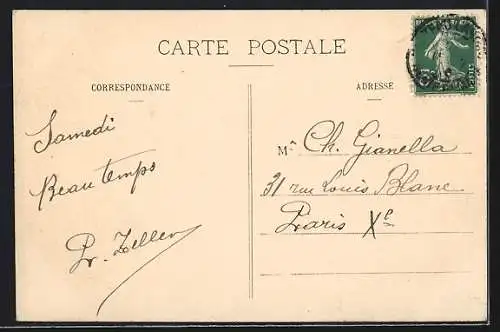 CARTE POSTALE
CORRESPONDANCE
ADRESSE
Samedi
Beau temps
Mr Ch. Gianella
31 rue Louis Blanc
Paris Xe